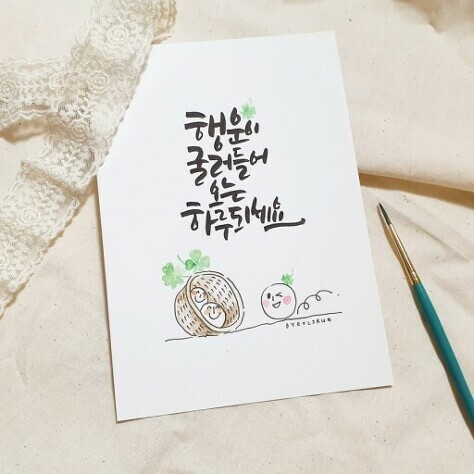 행운이
굴러들어
오는
하루되세요
BYEOLSKUN